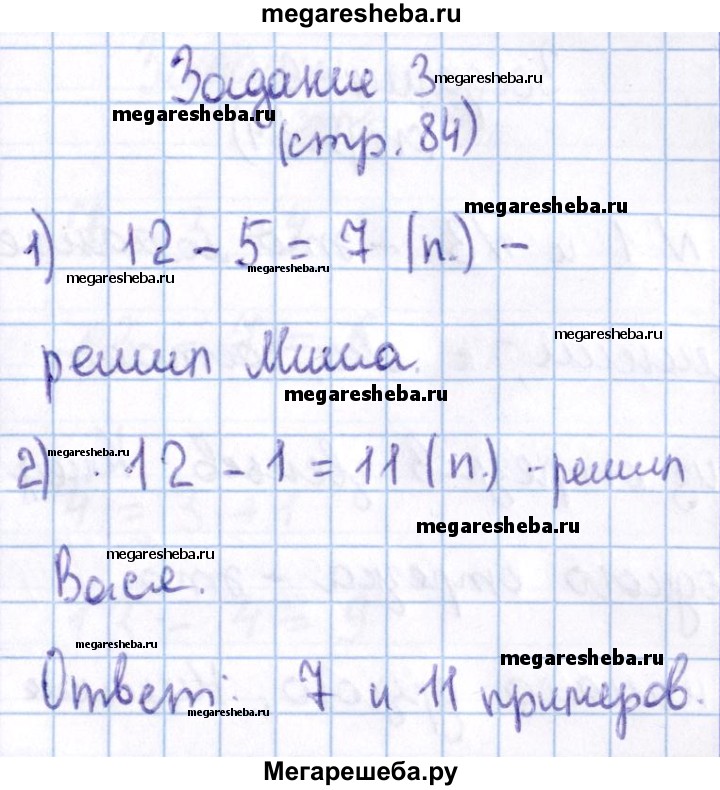 megaresheba.ru
Задание 3
megaresheba.ru
megaresheba.ru
(стр. 84)
megaresheba.ru
1) 12 - 5 = 7 (п.) -
megaresheba.ru
megaresheba.ru
megaresheba.ru
решил Миша.
megaresheba.ru
megaresheba.ru
2) 12 - 1 = 11 (п.) - решил
megaresheba.ru
megaresheba.ru
Вася.
megaresheba.ru
megaresheba.ru
Ответ: 7 и 11 примеров.
megaresheba.ru
Мегарешеба.ру